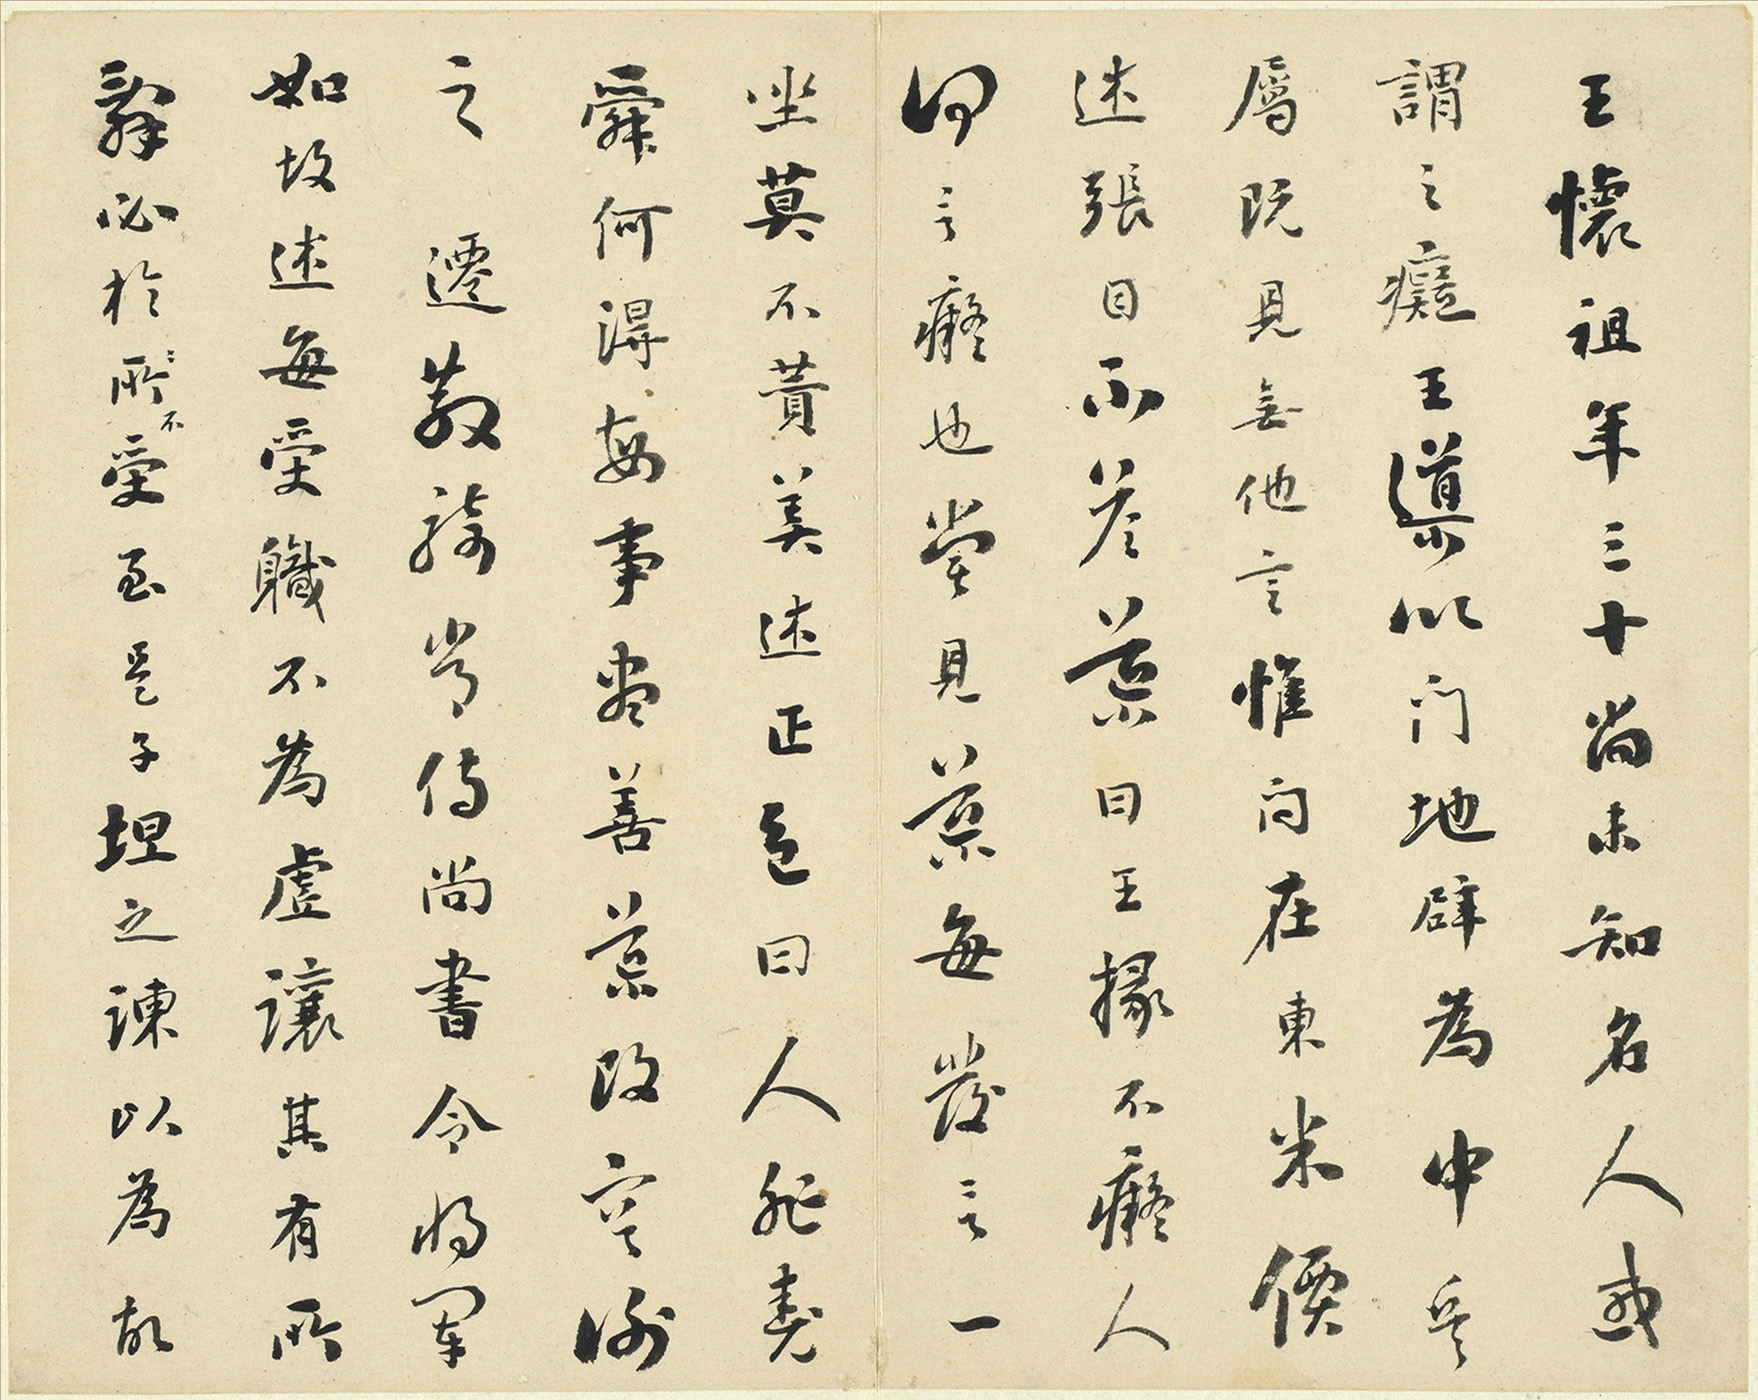 王懷祖年三十尚未知名人或
謂之癡王導以門地辟為中兵
屬既見無他言惟問在東米價
述張目不答導曰王掾不癡人
何言癡也嘗見導每發言一
坐莫不贊美述正色曰人非堯
舜何得每事盡善導改容謝
之遷散騎常侍尚書令將軍
如故述每受職不為虛讓其有所
辭必於所不受至是子坦之諫以為故